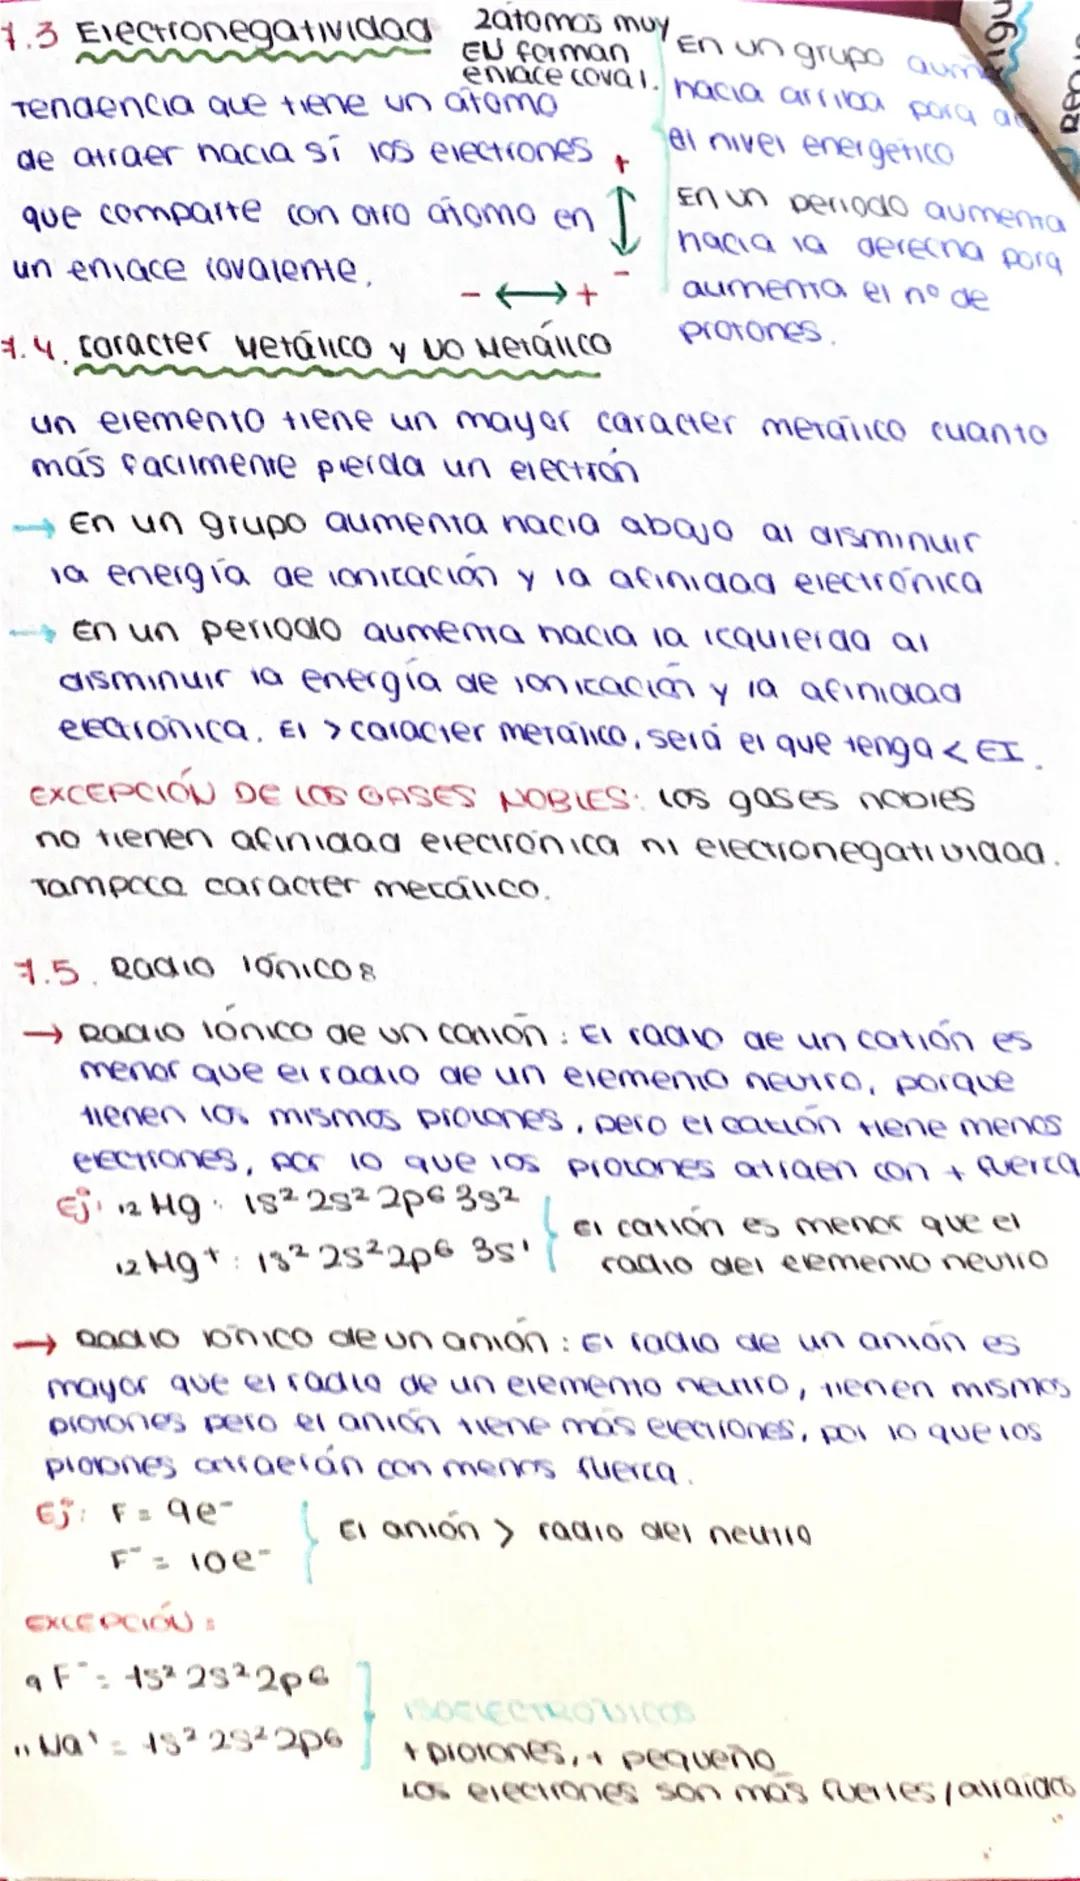 7.3 Electronegatividad
2 átomos muy
EN forman
enlace coval.
Tendencia que tiene un átomo
de atraer hacia sí los electrones
que comparte con otro átomo en
un enlace covalente.
+
-
- ⟷ +
En un grupo
hacia arriba porq
el nivel energético
En un periodo aumenta
hacia la derecha porq
aumenta el nº de
protones.
7.4. Caracter Metálico y No Metálico
un elemento tiene un mayor caracter metálico cuanto
más facilmente pierda un electrón
→ En un grupo aumenta hacia abajo al disminuir
la energía de ionización y la afinidad electrónica
→ En un periodo aumenta hacia la izquierda al
disminuir la energía de ionización y la afinidad
electrónica. El > caracter metálico, será el que tenga < EI.
EXCEPCIÓN DE LOS GASES NOBLES: los gases nobles
no tienen afinidad electrónica ni electronegatividad.
Tampoco caracter metálico.
7.5. Radio iónico:
→ Radio iónico de un catión: El radio de un catión es
menor que el radio de un elemento neutro, porque
tienen los mismos protones, pero el catión tiene menos
electrones, por lo que los protones atraen con + fuerza
Ej: 12 Mg: 1s² 2s² 2p6 3s²
12 Mg+: 1s² 2s² 2p6 3s¹
el catión es menor que el
radio del elemento neutro
→ Radio iónico de un anión: El radio de un anión es
mayor que el radio de un elemento neutro, tienen mismos
protones pero el anión tiene más electrones, por lo que los
protones atraerán con menos fuerza.
Ej: F = 9e-
F- = 10e-
El anión > radio del neutro
EXCEPCIÓN:
9 F- = 1s² 2s² 2p6
11 Na+ = 1s² 2s² 2p6
ISOELECTRÓNICOS
+ protones, + pequeño
Los electrones son más fuertes/atraídos